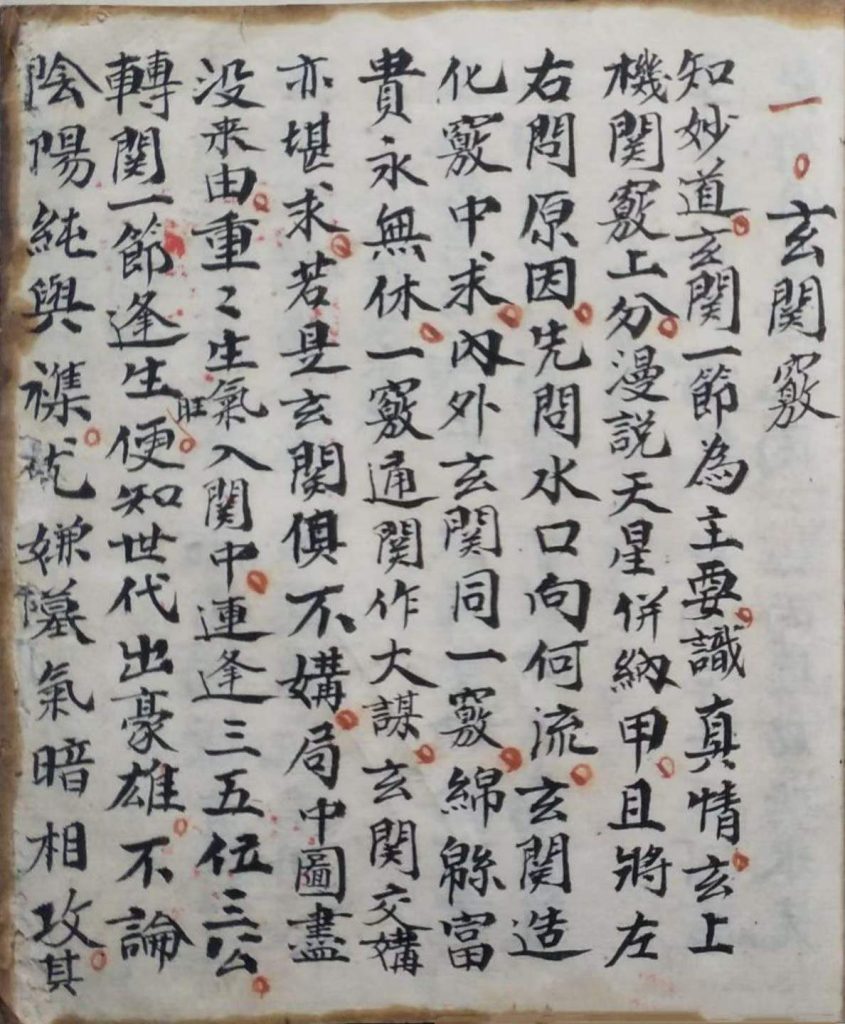 一。玄関竅
知妙道。玄関一節為主要。識真情。玄上
機関竅上分。漫説天星併納甲。且將左
右問原因。先問水口向何流。玄関造
化竅中求。內外玄関同一竅。綿緜富
貴永無休。一竅通関作大謀。玄関交媾
亦堪求。若是玄関俱不媾。局中圖盡
没来由。重〻生氣入関中。連逢三五位三公。
轉関一節逢生旺。便知世代出豪雄。不論
陰陽純與襍。嫌墓氣暗相攻。其